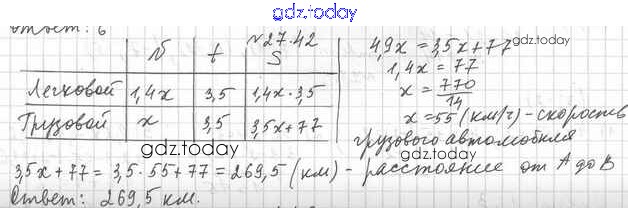 gdz.today
Ответ: 6
№27.42
v t S
Легковой 1,4x 3,5 1,4x·3,5
Грузовой x 3,5 3,5x+77
4,9x = 3,5x+77
1,4x = 77
x = 770/14
x = 55 (км/г) - скорость
грузового автомобиля
3,5x+77 = 3,5·55+77 = 269,5 (км) - расстояние от A до B
Ответ: 269,5 км.
gdz.today
gdz.today
gdz.today
gdz.today